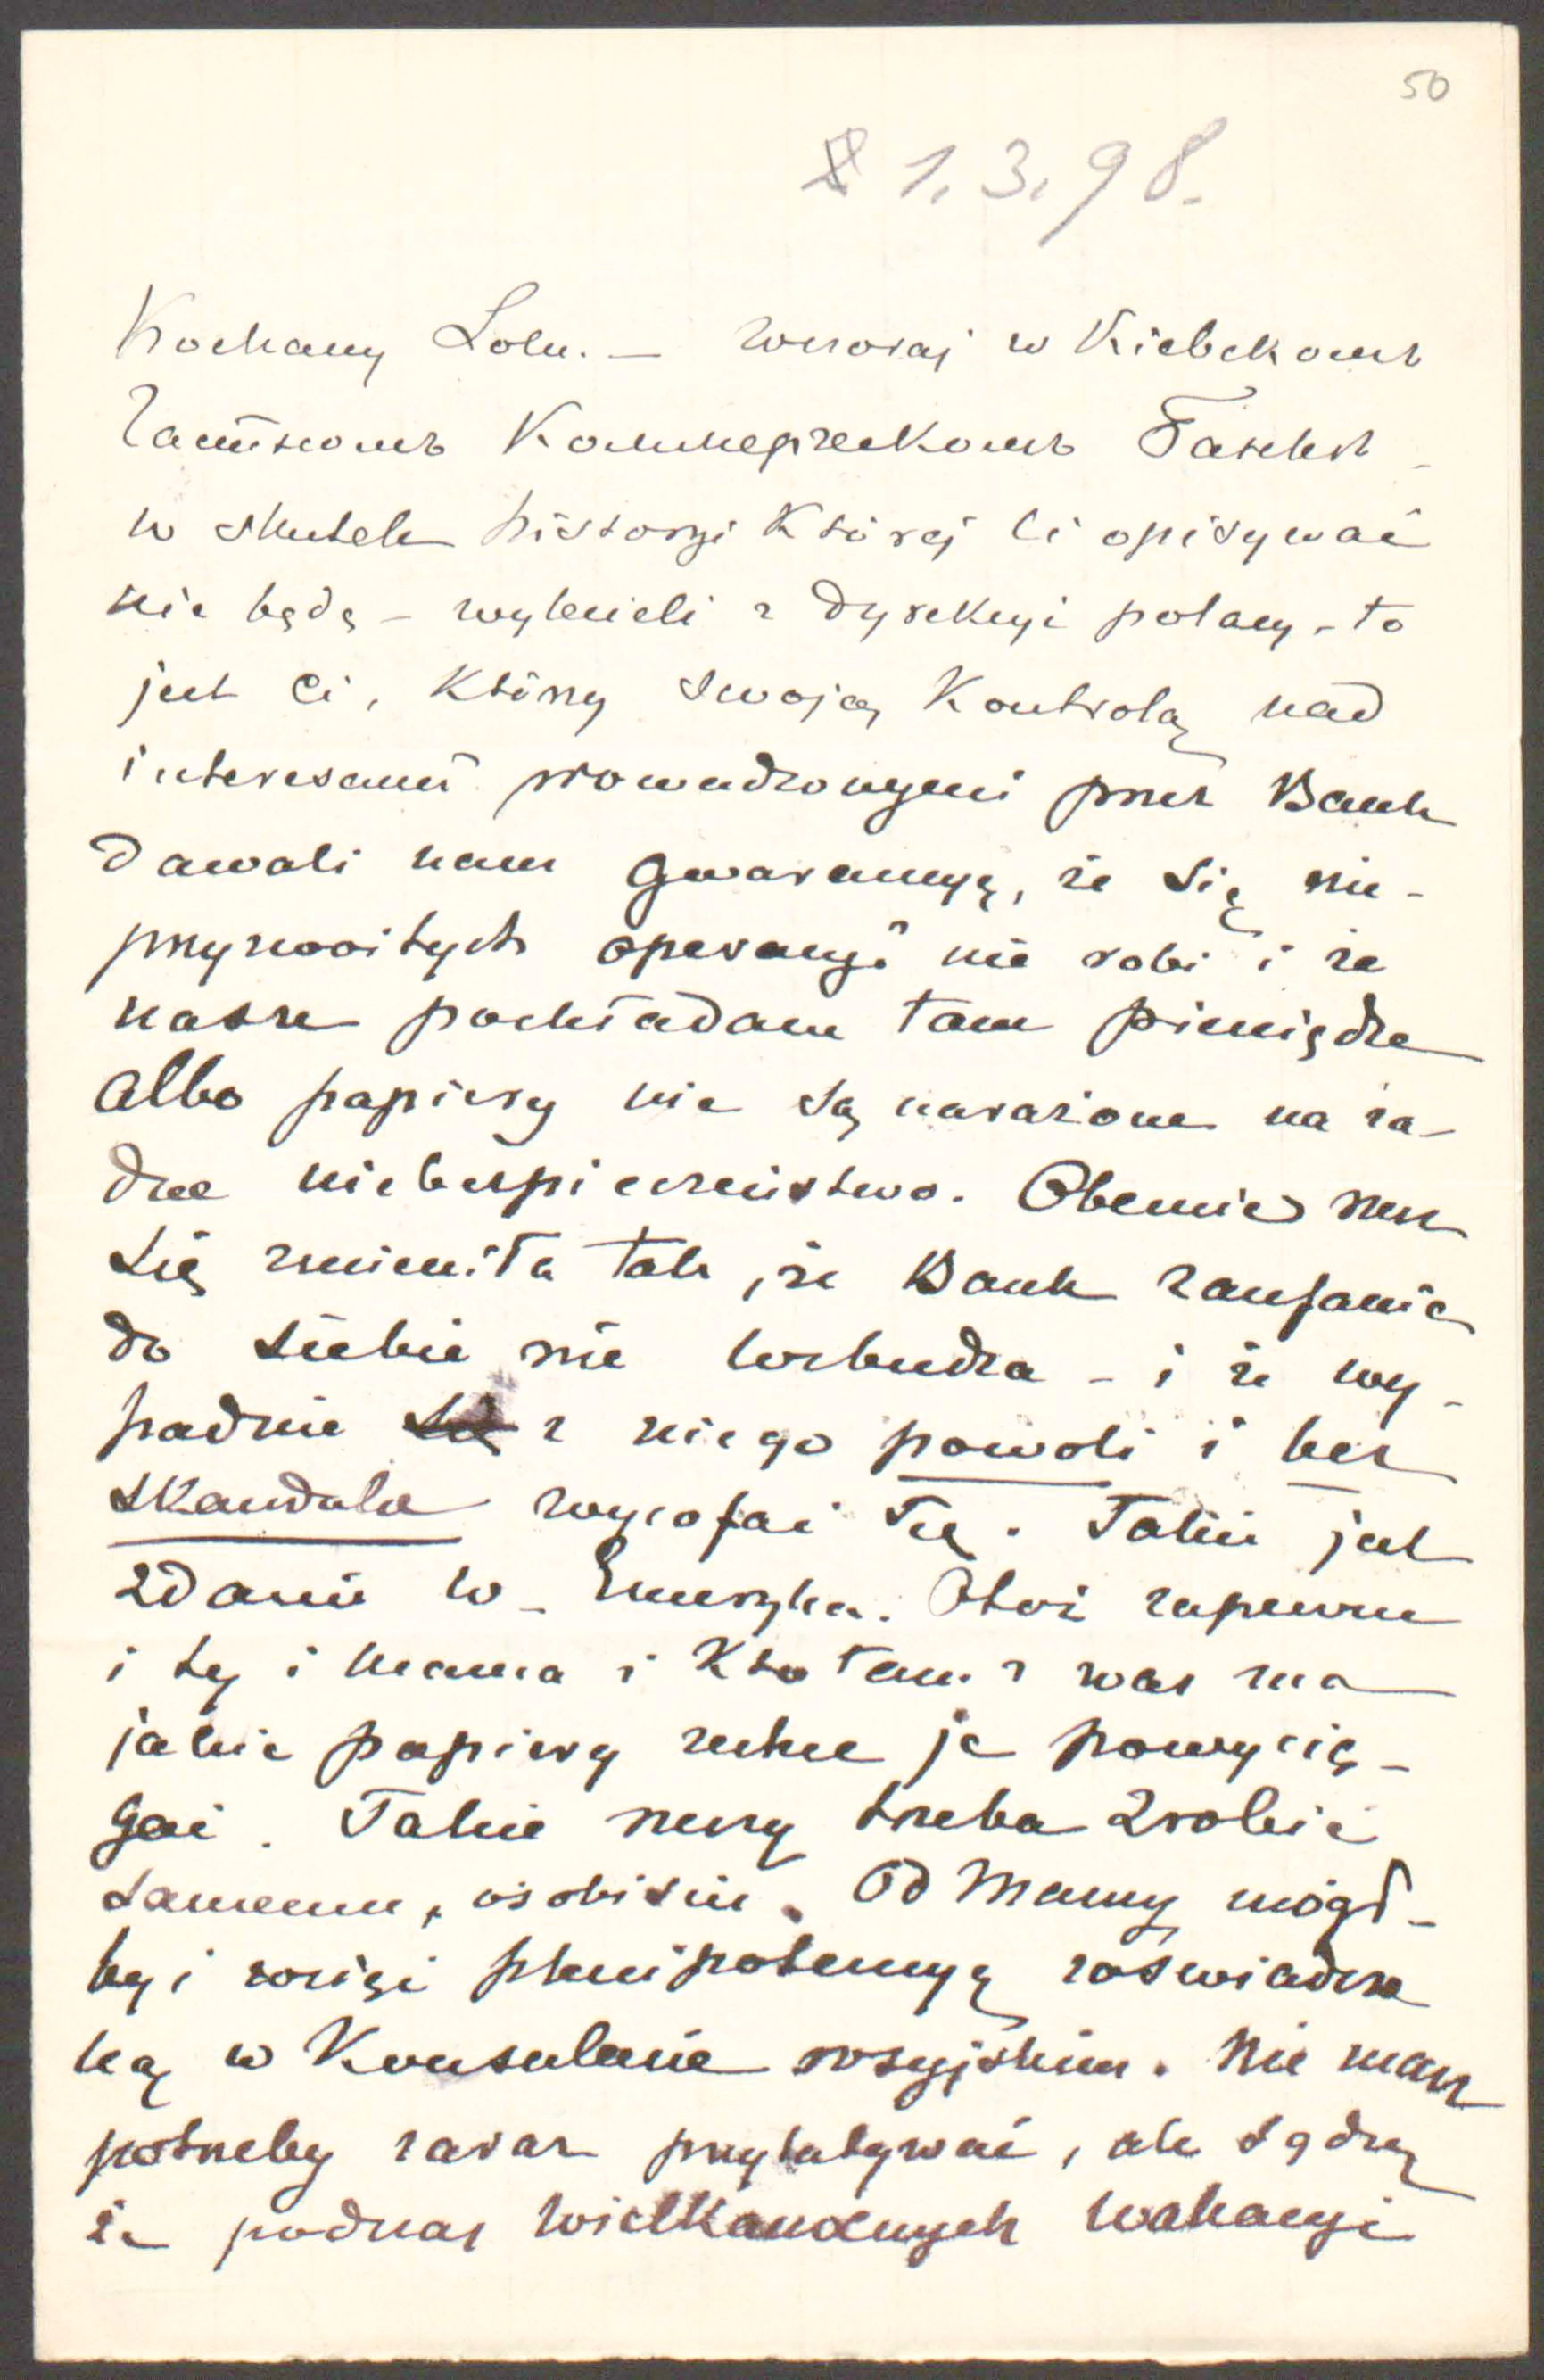 50
1.3.98.
Kochany Lolu. — wczoraj w Кіевскомъ
Частномъ Коммерческомъ Банкѣ -
w skutek historyi której Ci opisywać
nie będę – wylecieli z dyrekcyi polacy – to
jest Ci, którzy swoją kontrolą nad
interesami prowadzonymi przez Bank
dawali nam gwarancyę, że się nie-
przyzwoitych operacyi nie robi i że
nasze pochładane tam pieniądze
albo papiery nie są narażone na ża-
dne niebezpieczeństwo. Obecnie rzecz
się zmieniła tak, że Bank zaufania
do siebie nie wzbudza – i że wy-
padnie się z niego powoli i bez
skandalu wycofać się. Takie jest
zdanie w. Emeryka. Otóż zapewne
i ty i mama i kto tam z was ma
jakie papiery zechce je powycią-
gać. Takie rzeczy trzeba zrobić
samemu, osobiście. Od Mamy mógł-
byś wziąść plenipotencyę zaświadczo
ną w Konsulacie rosyjskim. Nie masz
potrzeby zaraz przylatywać, ale sądzę
że podczas wielkanocnych wakacyi